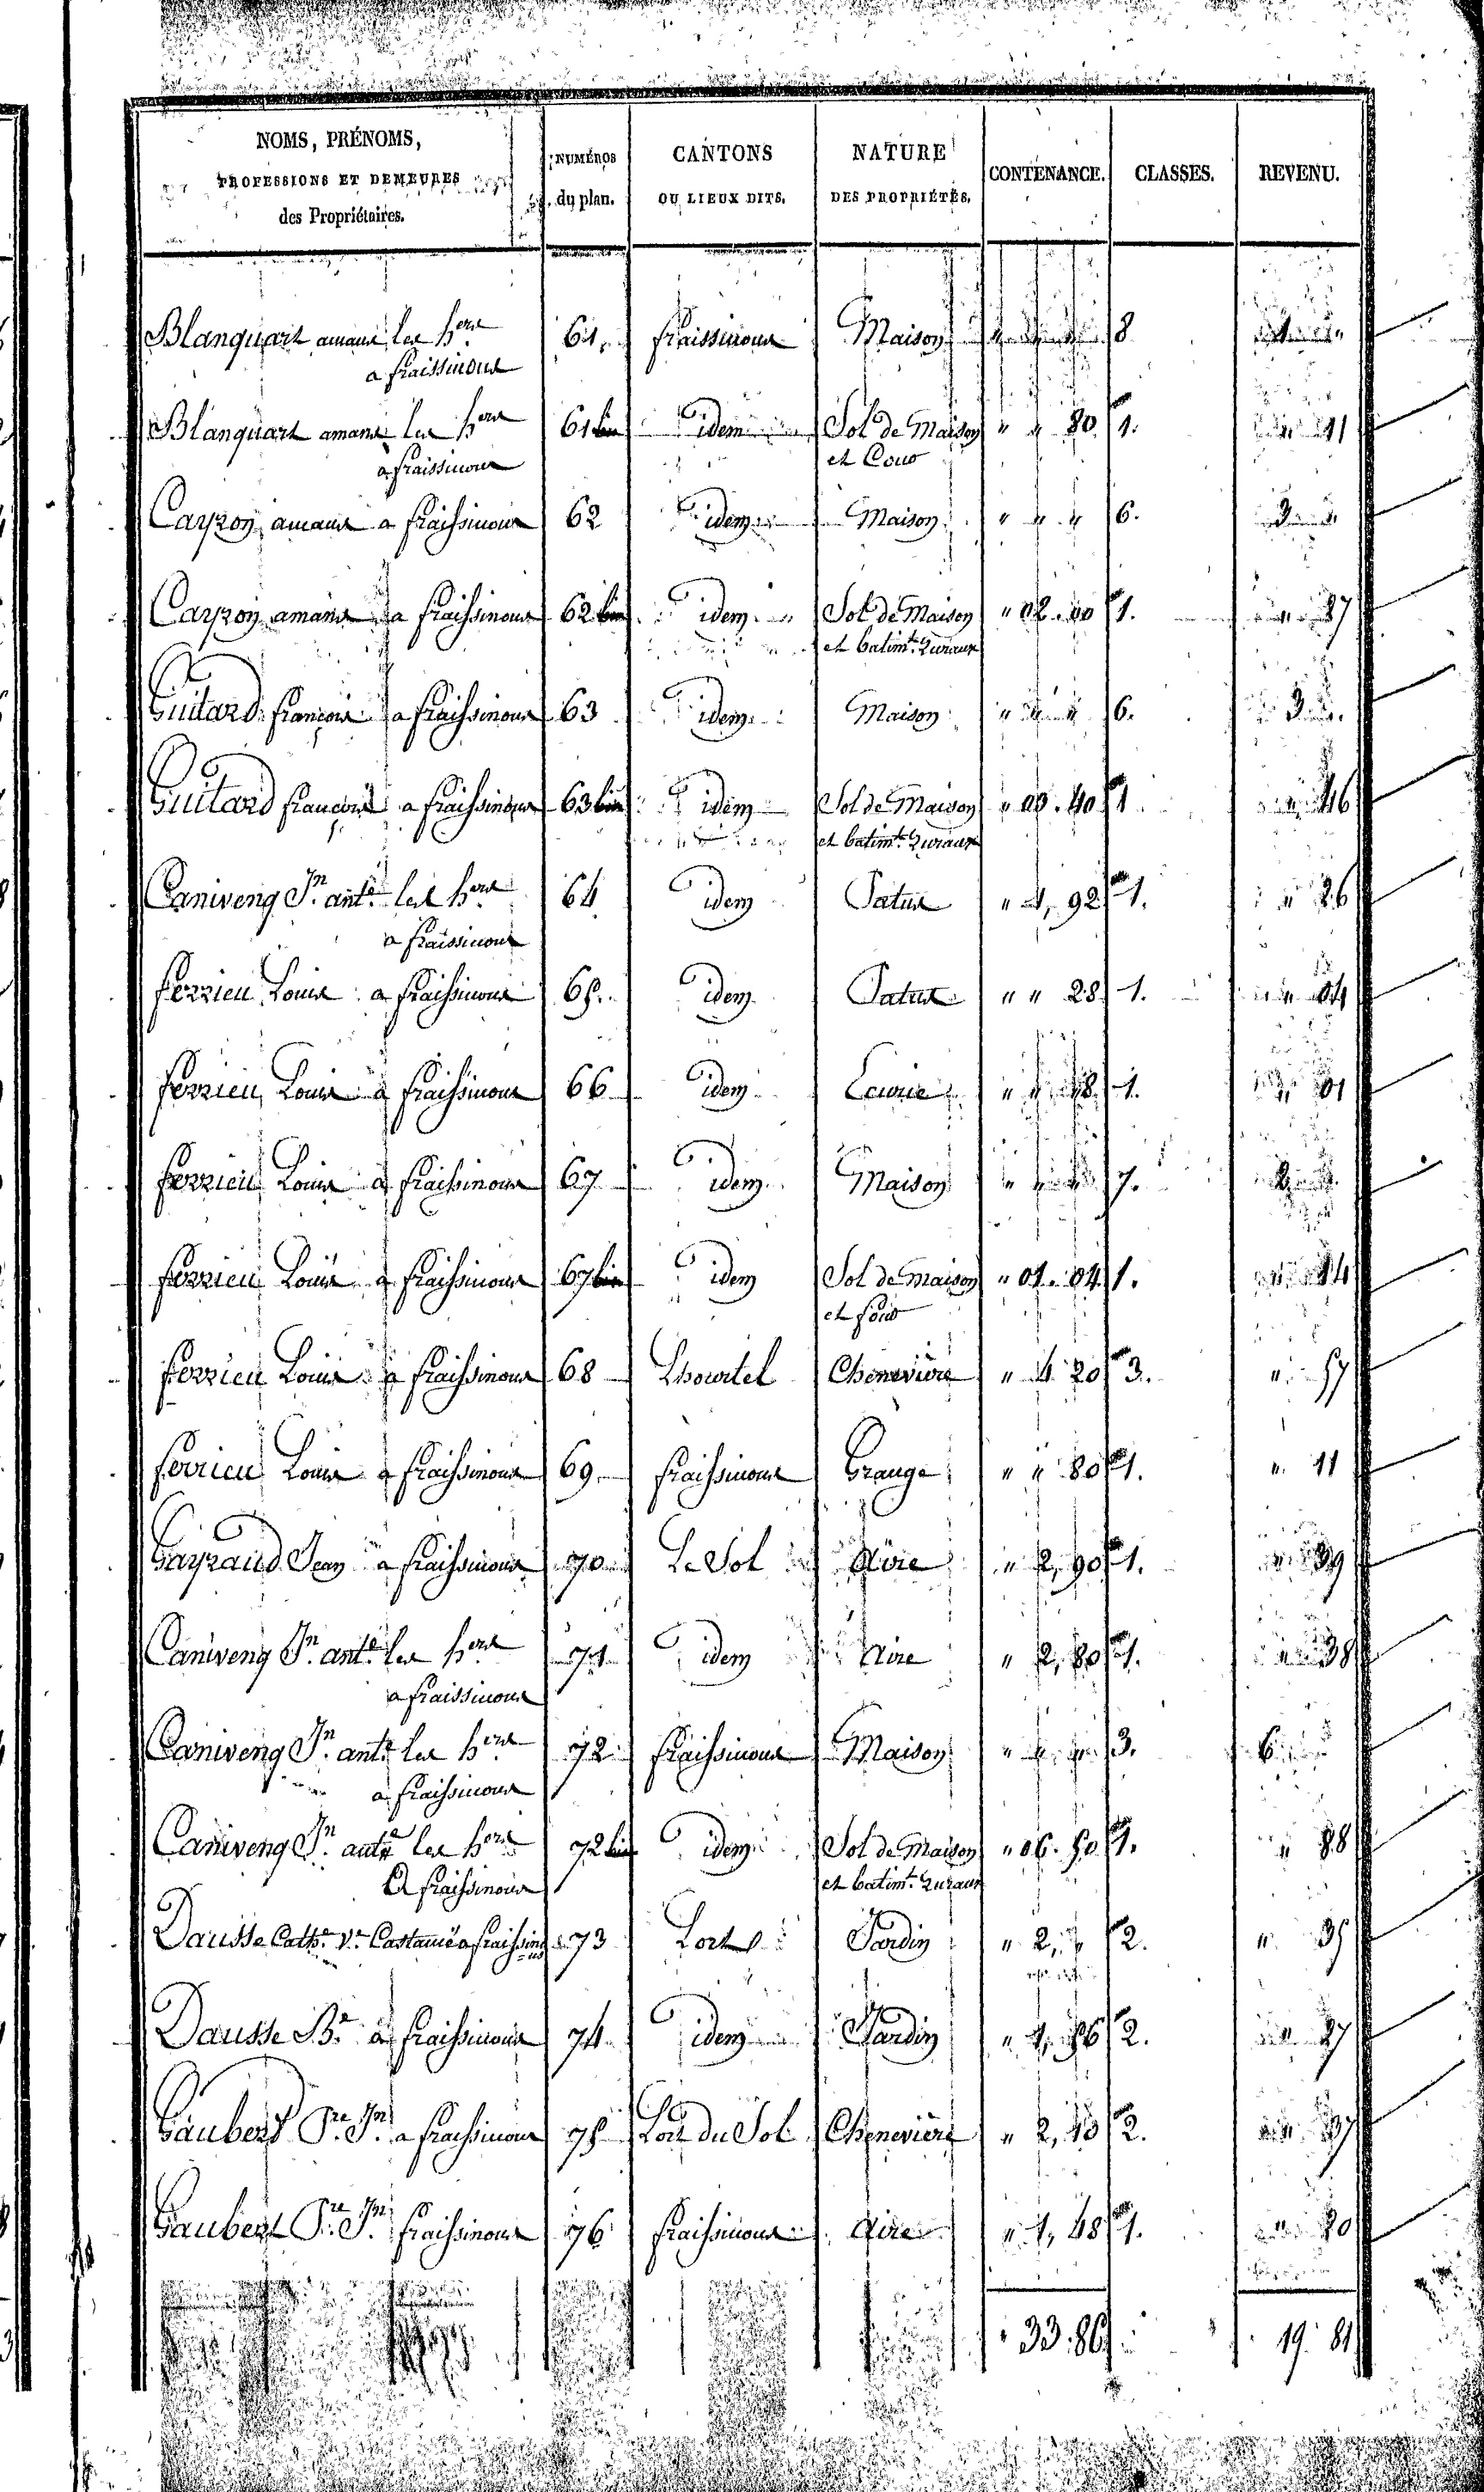 NOMS, PRÉNOMS,
PROFESSIONS ET DEMEURES
des Propriétaires.
NUMÉROS
du plan.
CANTONS
OU LIEUX DITS.
NATURE
DES PROPRIÉTÉS.
CONTENANCE.
CLASSES.
REVENU.
Blanquart amans les hers 61. fraissinous Maison " " " 8
a fraissinous
Blanquart amans les hers 61 bis idem Sol de Maison " " 80 1. " 11
à fraissinous et Cour
Cayron amans a fraissinous 62 idem Maison " " " 6. 3 "
Cayron amans a fraissinous 62 bis idem Sol de Maison " 02. 00 1. " 27
et batimts ruraux
Guitard françois a fraissinous 63 idem Maison " " " 6. 3 "
Guitard françois a fraissinous 63 bis idem Sol de Maison " 03. 40 1 " 46
et batimts ruraux
Caniveng Jn ante les hers 64 idem Patus " 1, 92 1. " 26
a fraissinous
ferrieu Louis a fraissinous 65. idem Patus " " 28 1. " 04
ferrieu Louis a fraissinous 66 idem Ecurie " " 1. " 01
ferrieu Louis a fraissinous 67 idem Maison " " " 7. 2 "
ferrieu Louis a fraissinous 67 bis idem Sol de Maison " 01. 04 1. " 14
et four
ferrieu Louis a fraissinous 68 Lhourtel Chenevière " 4 20 3. " 57
ferrieu Louis a fraissinous 69. fraissinous Grange " " 80 1. " 11
Gayraud Jean a fraissinous 70 Le Sol Aire " 2, 90 1. " 39
Caniveng Jn ante les hers 71 idem Aire " 2, 80 1. " 38
a fraissinous
Caniveng Jn ante les hers 72 fraissinous Maison " " " 3. 6
a fraissinous
Caniveng Jn ante les hers 72 bis idem Sol de Maison " 06. 50 1. " 88
A fraissinous et batimts ruraux
Dausse Cathe Ve Castanié a fraissino=us 73 Lort Jardin " 2, " 2. " 35
Dausse Be a fraissinous 74 idem Jardin " 1, 56 2. " 27
Gaubert Pre Jn a fraissinous 75 Lort du Sol Chenevière " 2, 10 2. " 37
Gaubert Pre Jn fraissinous 76 fraissinous Aire " 1, 48 1. " 20
33. 86 19. 81